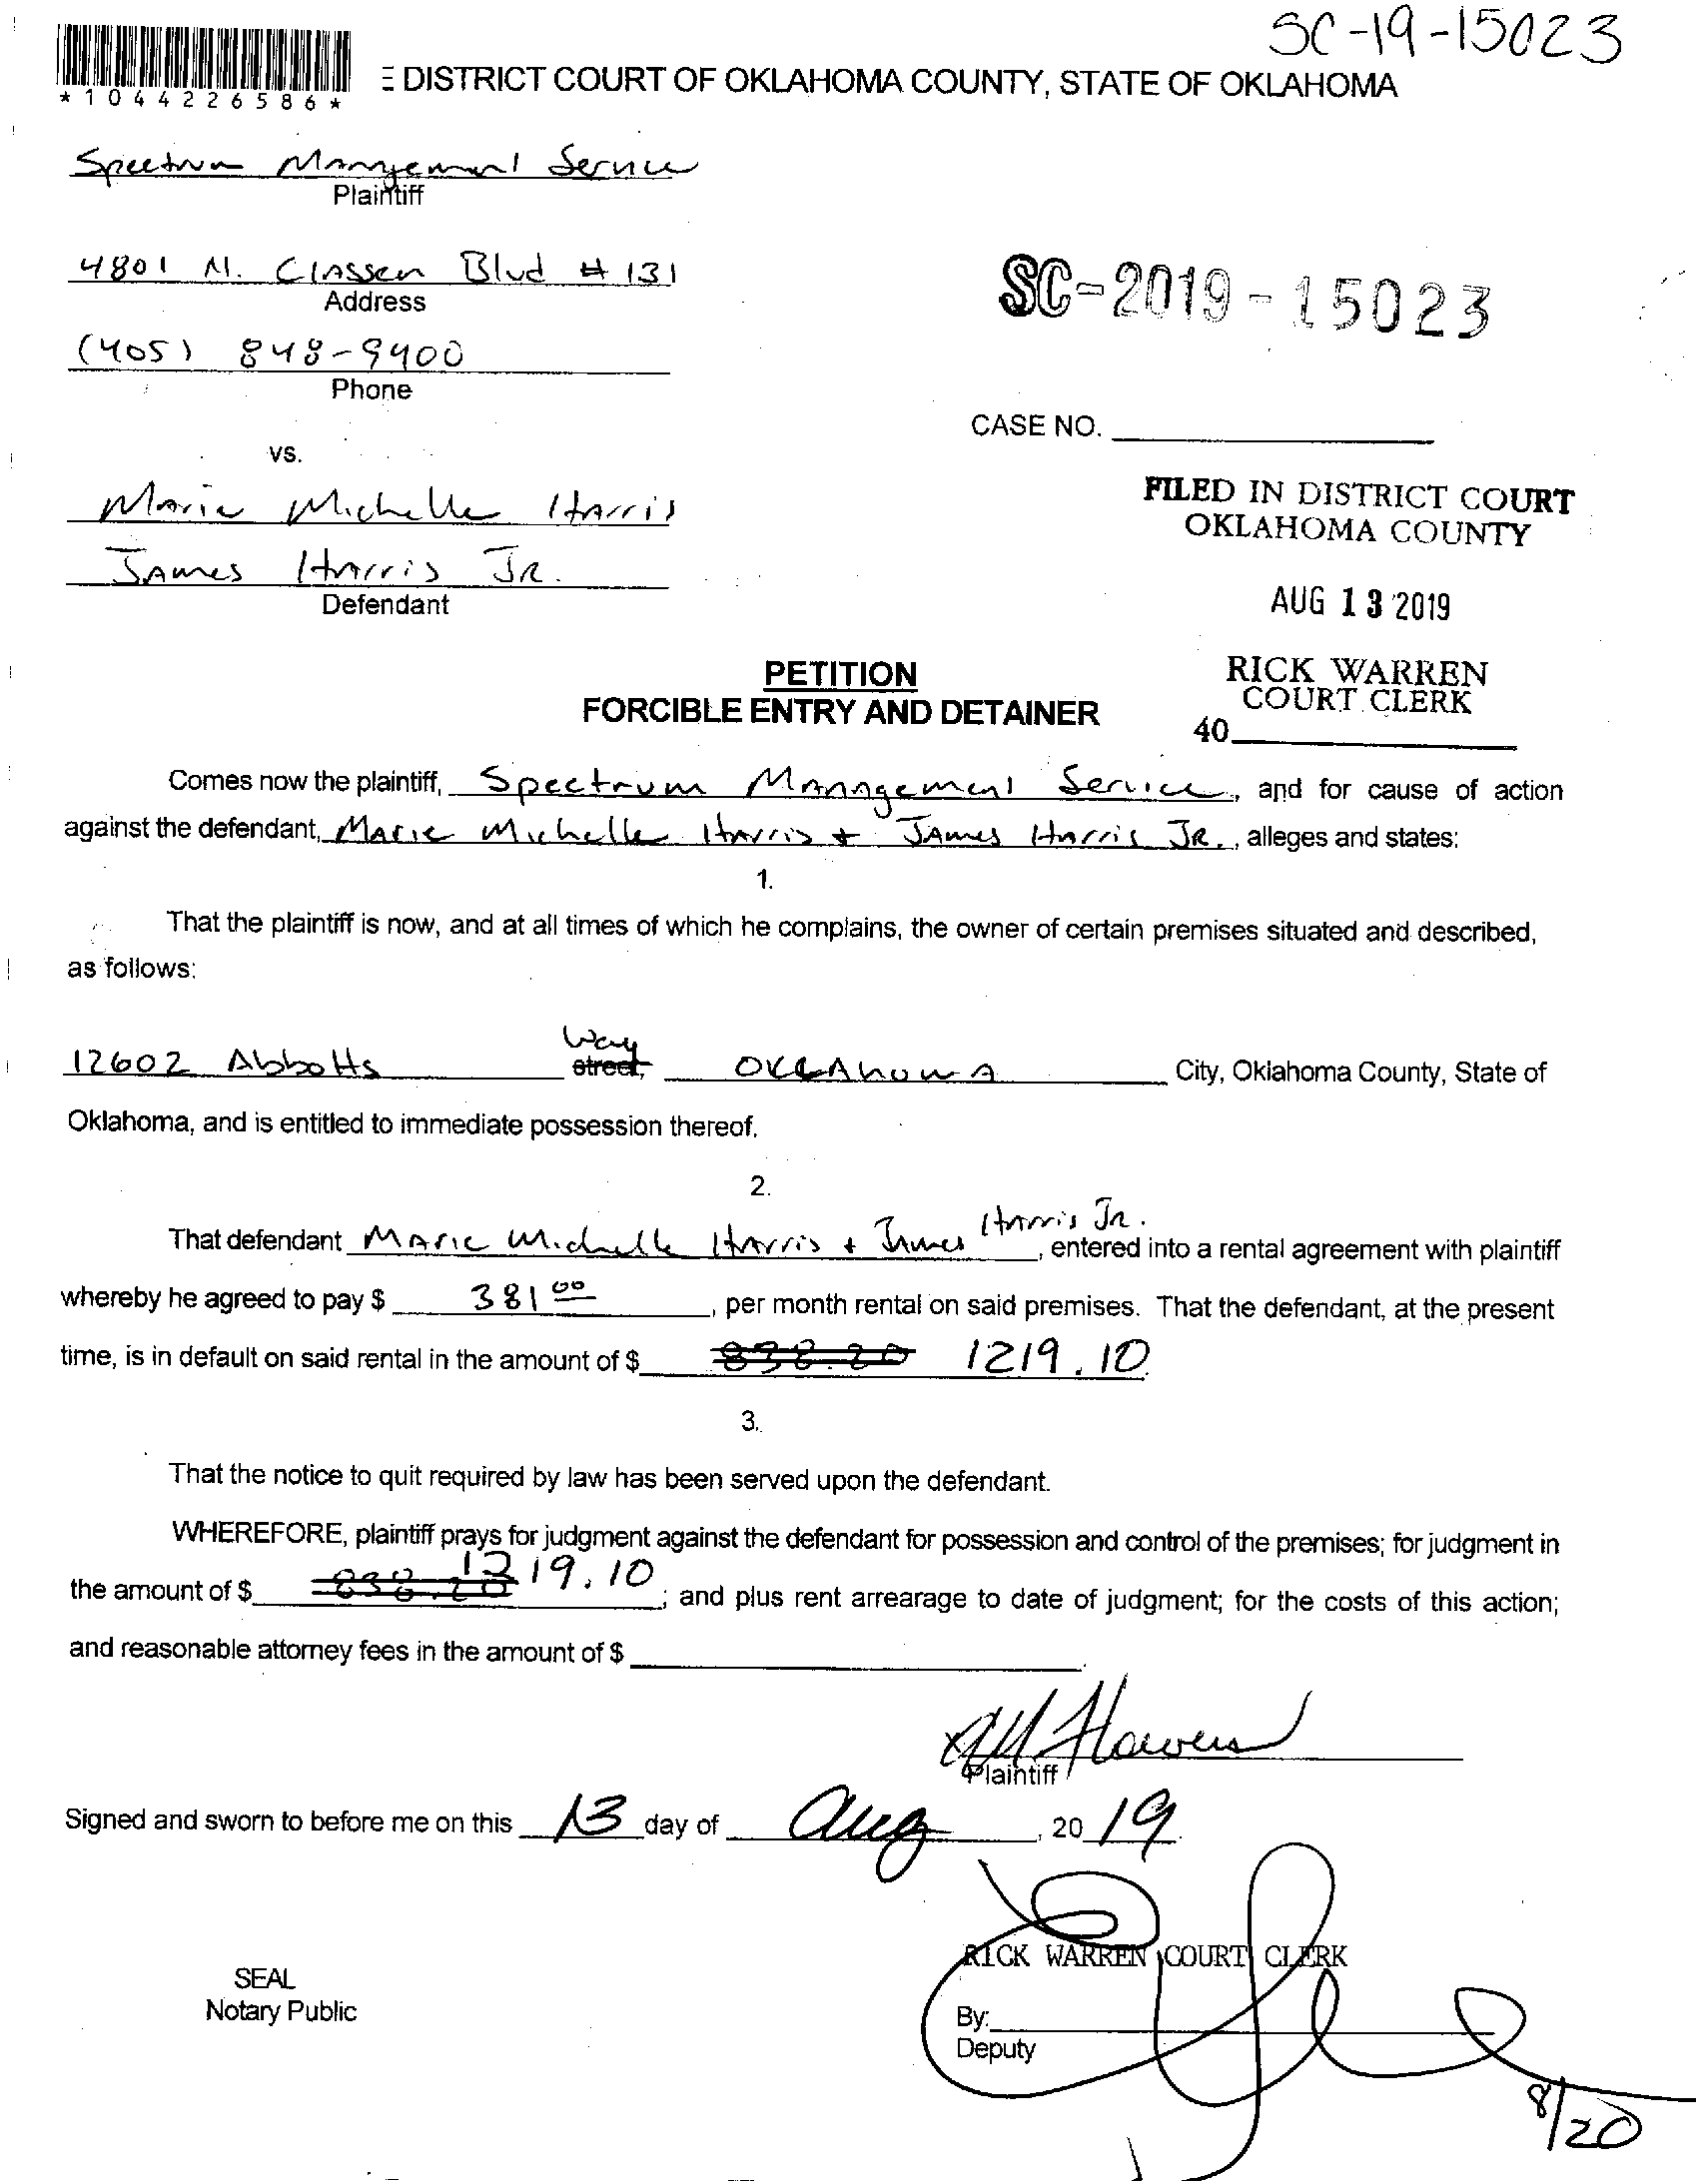 SC-19-15023
*1044226586*
E DISTRICT COURT OF OKLAHOMA COUNTY, STATE OF OKLAHOMA
Spectrum Management Service
Plaintiff
4801 N. Classen Blvd # 131
Address
(405) 848-9400
Phone
SC-2019-15023
CASE NO.
vs.
Marie Michelle Harris
James Harris JR.
Defendant
FILED IN DISTRICT COURT
OKLAHOMA COUNTY
AUG 13 2019
RICK WARREN
COURT CLERK
40
PETITION
FORCIBLE ENTRY AND DETAINER
Comes now the plaintiff, Spectrum Management Service, and for cause of action
against the defendant, Marie Michelle Harris + James Harris JR., alleges and states:
1.
That the plaintiff is now, and at all times of which he complains, the owner of certain premises situated and described,
as follows:
12602 Abbotts Way street, OKLAHOMA City, Oklahoma County, State of
Oklahoma, and is entitled to immediate possession thereof.
2.
That defendant Marie Michelle Harris + James Harris Jr., entered into a rental agreement with plaintiff
whereby he agreed to pay $ 381 00, per month rental on said premises. That the defendant, at the present
time, is in default on said rental in the amount of $ 838.20 1219.10
3.
That the notice to quit required by law has been served upon the defendant.
WHEREFORE, plaintiff prays for judgment against the defendant for possession and control of the premises; for judgment in
the amount of $ 838.20 1219.10; and plus rent arrearage to date of judgment; for the costs of this action;
and reasonable attorney fees in the amount of $
Flowers
Plaintiff
Signed and sworn to before me on this 13 day of Aug, 20 19.
RICK WARREN COURT CLERK
SEAL
Notary Public
By:
Deputy
8/20